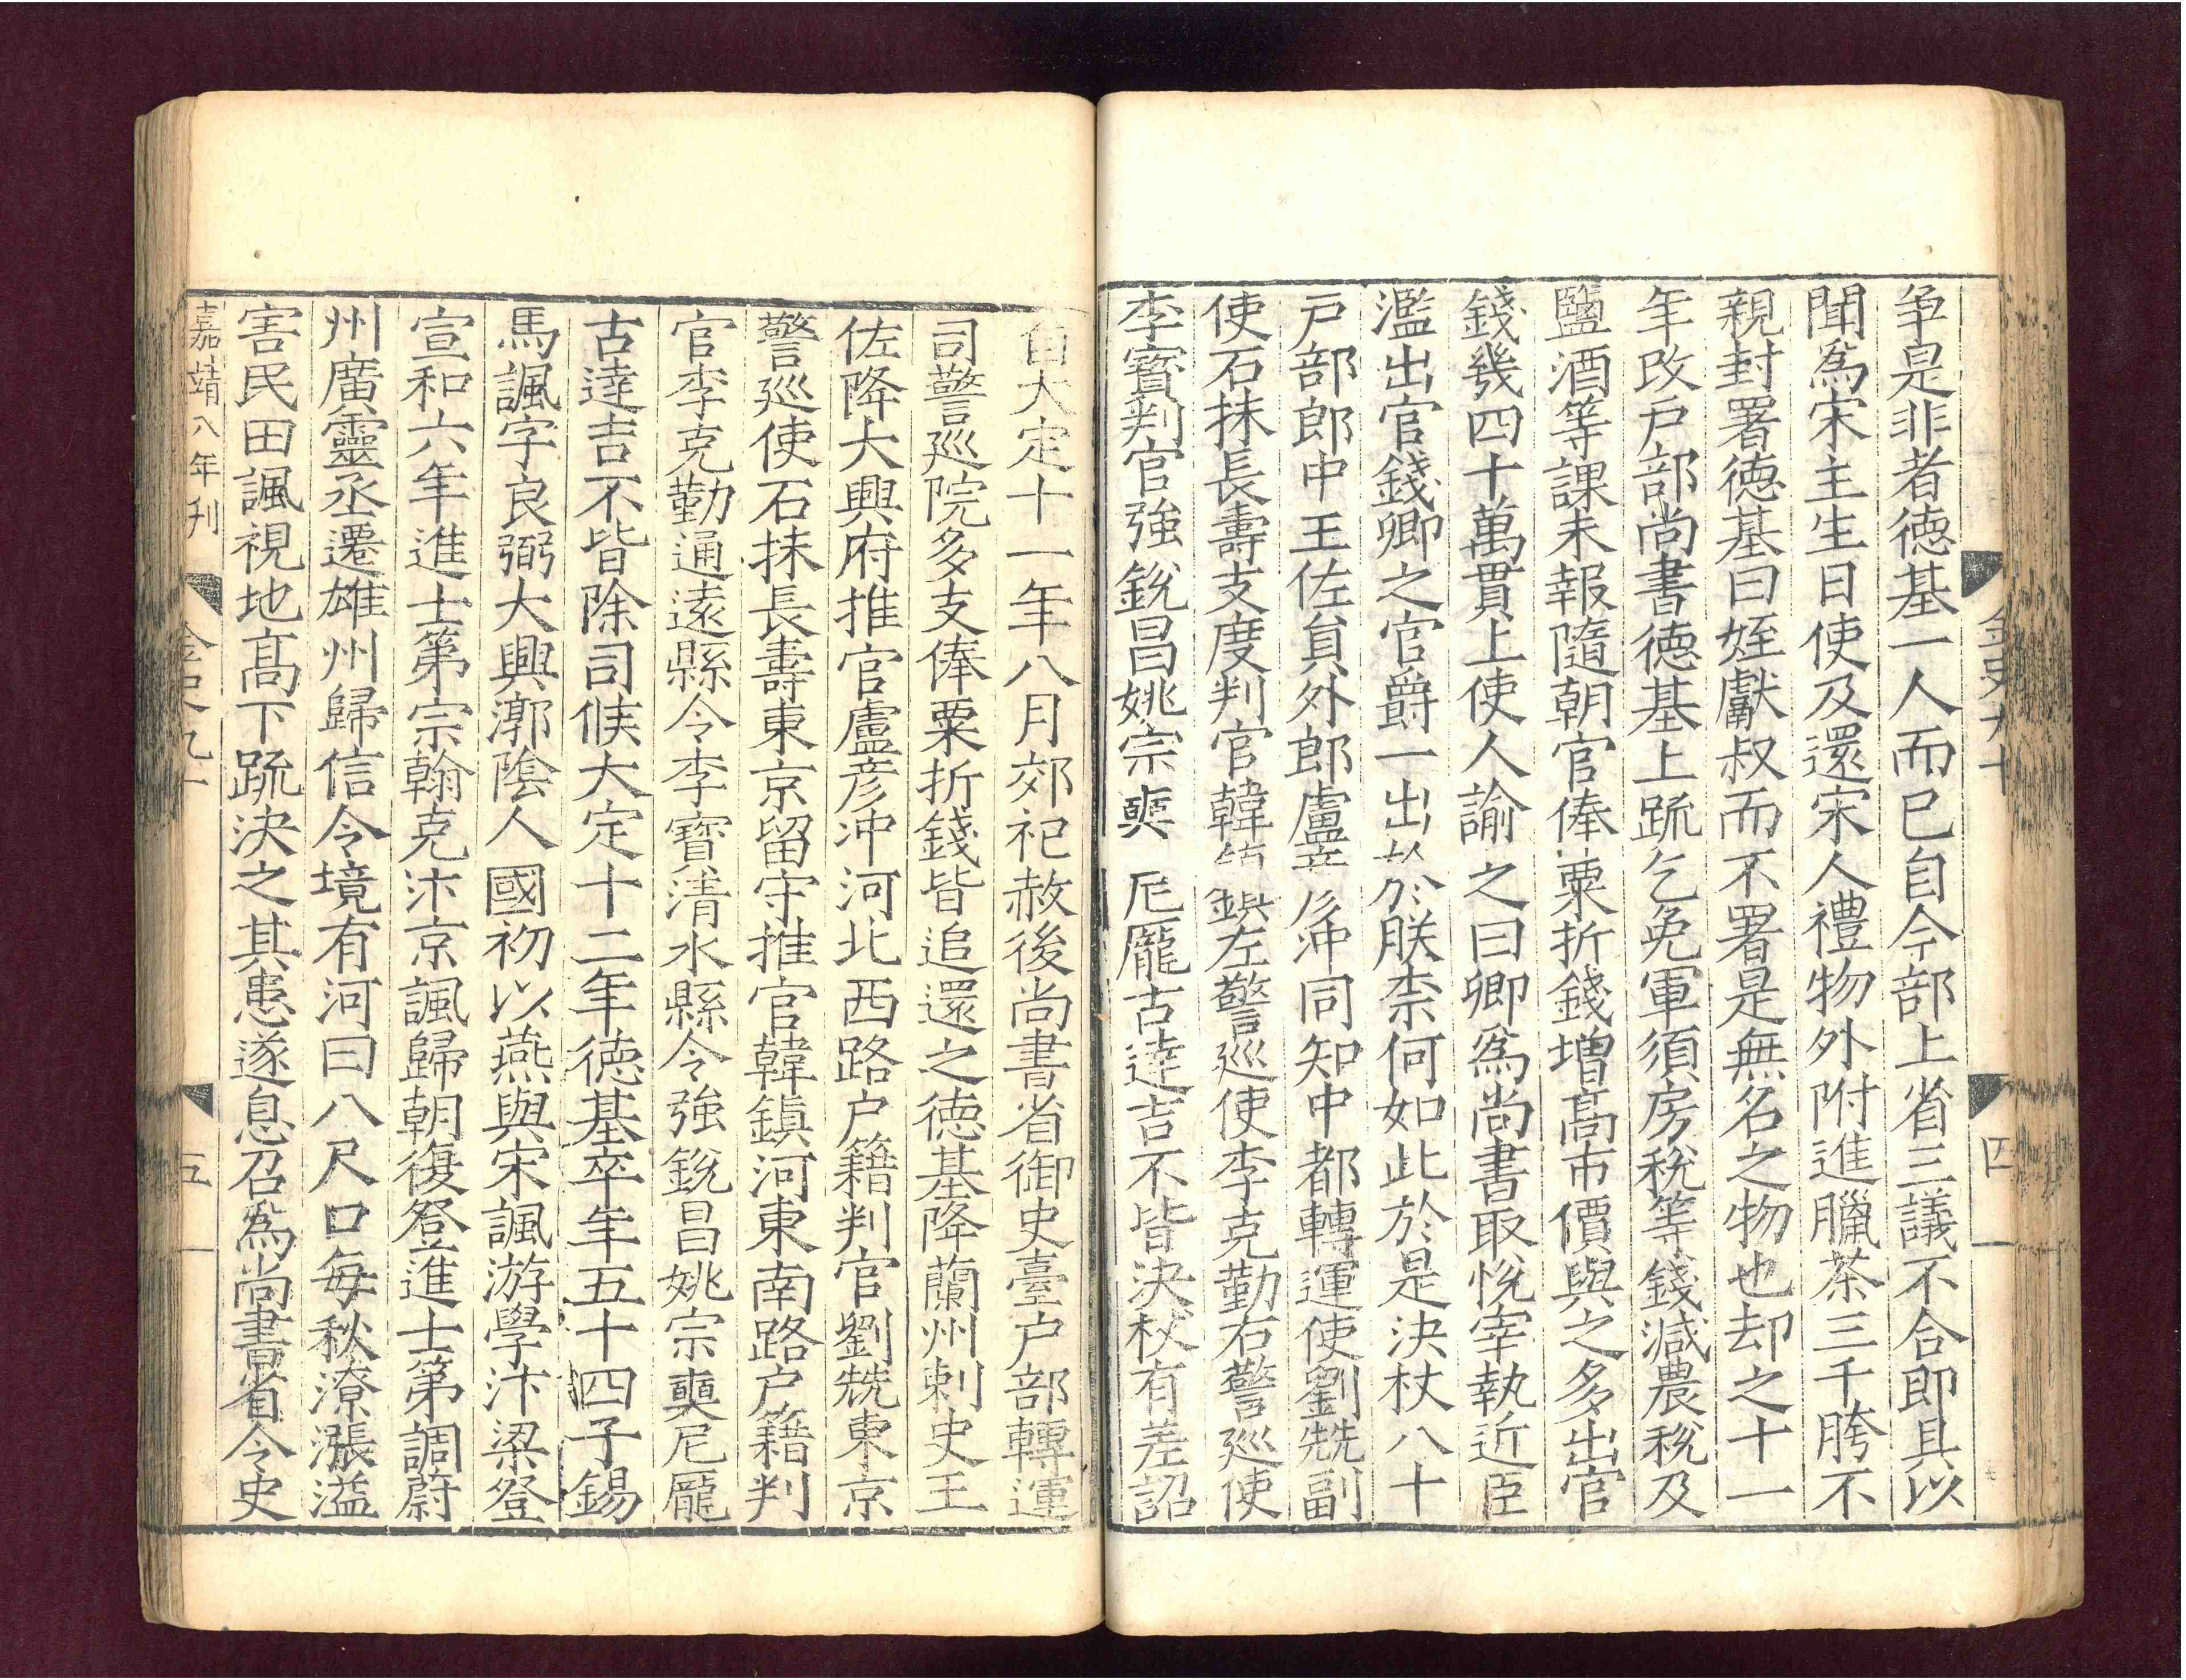 金史九十
四
爭是非者德基一人而已自今部上省三議不合即具以
聞爲宋主生日使及還宋人禮物外附進臘茶三千胯不
親封署德基曰姪獻叔而不署是無名之物也却之十一
年改戶部尚書德基上䟽乞免軍須房稅等錢減農稅及
鹽酒等課未報隨朝官俸粟折錢增髙市價與之多出官
錢幾四十萬貫上使人諭之曰卿爲尚書取悅宰執近臣
濫出官錢卿之官爵一出於朕柰何如此於是決杖八十
戸部郎中王佐員外郎盧彥冲同知中都轉運使劉兟副
使石抹長壽支度判官韓鎮左警巡使李克勤右警巡使
李寶判官強銳昌姚宗奭尼厖古達吉不皆決杖有差詔
自大定十一年八月郊祀赦後尚書省御史臺户部轉運
司警巡院多支俸粟折錢皆追還之德基降蘭州刺史王
佐降大興府推官盧彥冲河北西路户籍判官劉兟東京
警巡使石抹長壽東京留守推官韓鎮河東南路户籍判
官李克勤通遠縣令李寶清水縣令強銳昌姚宗奭尼厖
古達吉不皆除司候大定十二年德基卒年五十四子錫
馬諷字良弼大興漷隂人國初以燕與宋諷游學汴梁登
宣和六年進士第宗翰克汴京諷歸朝復登進士第調蔚
州廣靈丞遷雄州歸信令境有河曰八尺口每秋潦漲溢
害民田諷視地髙下䟽決之其患遂息召爲尚書省令史
嘉靖八年刋
金史九十
五